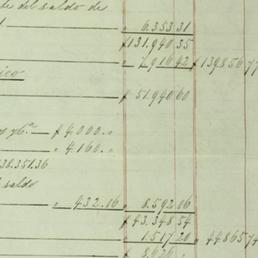 te del saldo de
" 6.353.31
₣131.940.35
" 7.916.42 ₣ 139856.77
ico
₣ 51.940.60
y 96.ª — ₣ 4.000.„
" 4.160.„
38.351.36
saldo
" 432.06 " 8.592.06
₣ 43.348.54
" 1.517.20 " 44865.74
₣ 8.626.„